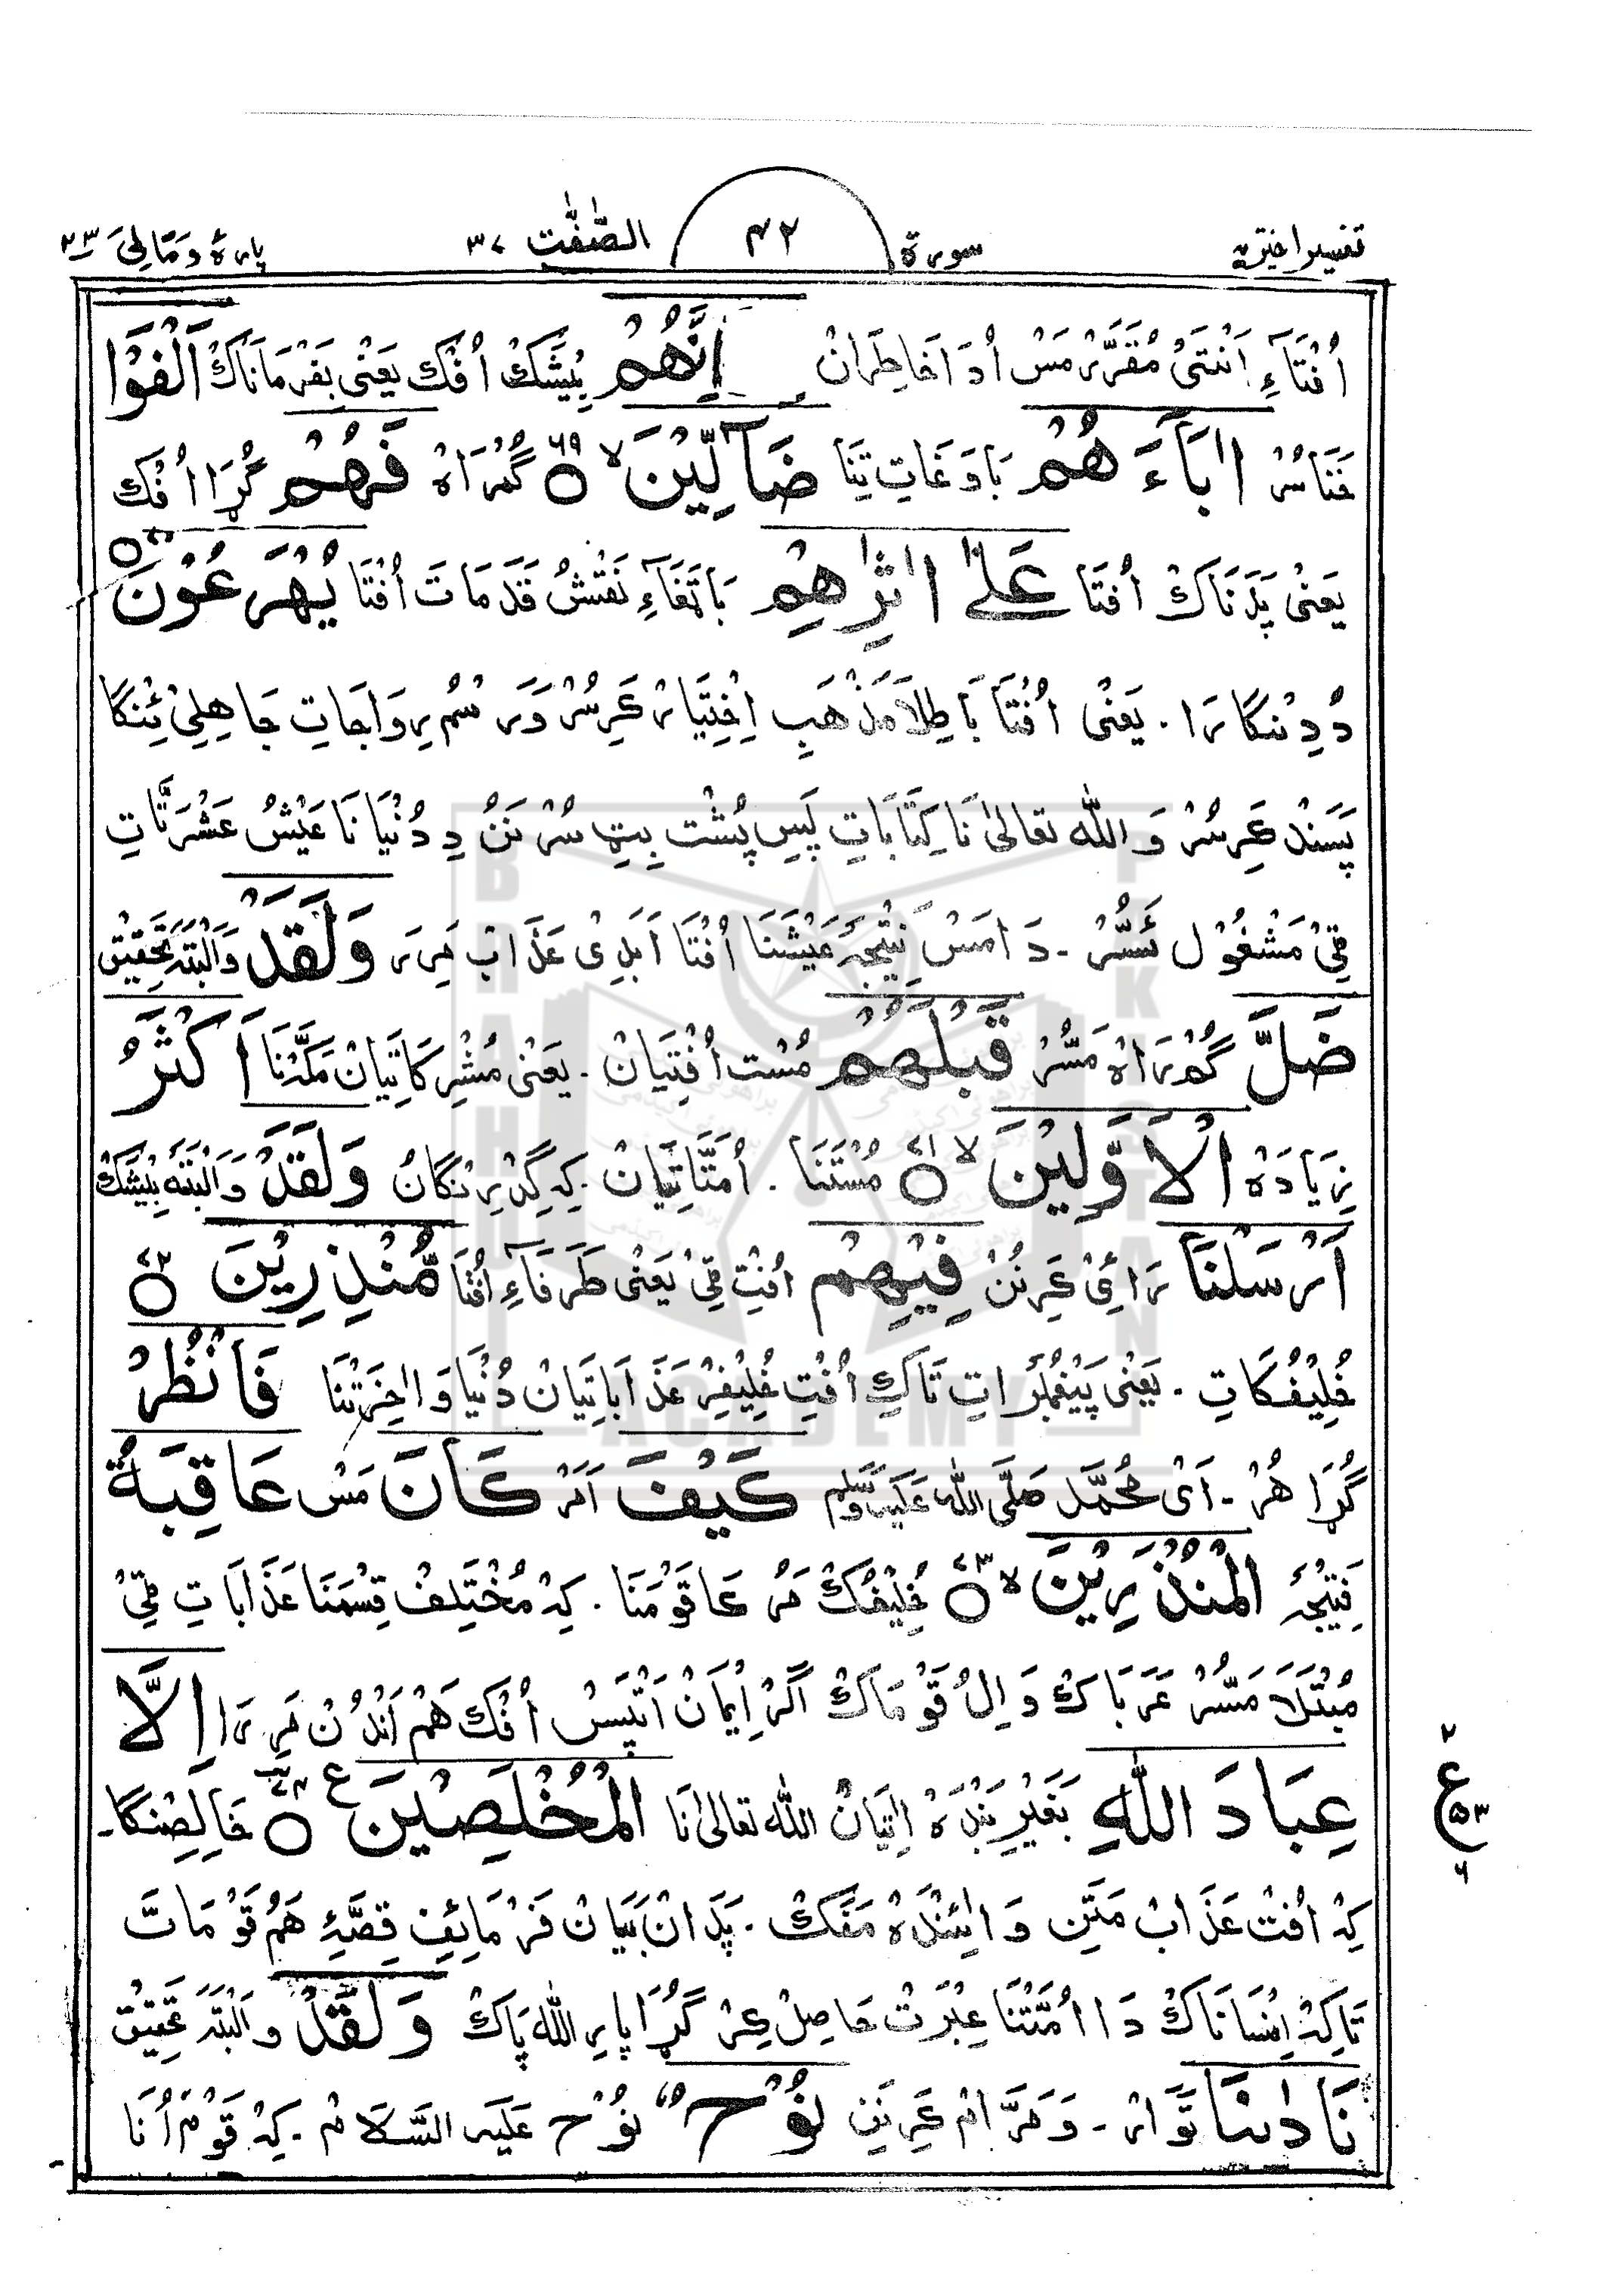 تفسیر اختریہ سورة ۴۲ الصّٰفّٰت ۳۷ پارہ وَمَالِیَ ۲۳
اُفْتَآءِ اَنْتَئ مُقَرَّرْ مَسْ اُدَا خَاطِرَانْ اِنَّهُمْ بِیْشَکْ اُفْک یَعْنِیْ بَفَرْمَانَاکْ اَلْفَوْا
خَنَاسُرْ اٰبَآءَهُمْ بَاوَغَاتِ تِنَا ضَآلِّیْنَ ۙ۶۹ گُمْرَاہْ فَهُمْ گُڑَا اُفْک
یَعْنِیْ پَدَنَاکْ اُفْتَا عَلٰٓی اٰثٰرِهِمْ نَقْشُ قَدَمَاتَ اُفْتَا یُهْرَعُوْنَ ۷۰
دُدِنْگَارَا۔ یَعْنِیْ اُفْتَا بَاطِلَا مَذْهَبِ اِخْتِیَارْ کَرِسُرْ وَرَسْمُ رِوَاجَاتِ جَاهِلِیْ ئِنْگَا
پَسَنْد کَرِسُرْ وَ اللّٰه تعالیٰ نَا کِتَابَاتِ پَسِ پُشْت بِٹِسُرْ نَنْ دِ دُنْیَا نَا عَیْشُ عَشْرَتَاتِ
ٹِیْ مَشْغُوْل مَسُّرْ۔ دَا مَسْ نَتِیْجَهْ عَیْشَنَا اُفْتَا اَبَدِیْ عَذَابْ مَرِرَ وَلَقَدْ وَالْبَتَّہ تَحْقِیْق
ضَلَّ گُمْرَاہْ مَسُّرْ قَبْلَهُمْ مُسْت اُفْتِیَانْ۔ یَعْنِیْ مُشْرِکَاتِیَانْ مَکَّهْنَا اَکْثَرُ
زِیَادَهْ الْاَوَّلِیْنَ ۙ۷۱ مُسْتَنَا۔ اُمَّتَاتِیَانْ۔ کِهْ گِدْرِنْگَانُ وَلَقَدْ وَالْبَتَّهْ بِیْشَکْ
اَرْسَلْنَا رَاهِیْ کَرِنُنْ فِیْهِمْ اُفْتِ ٹِیْ یَعْنِیْ طَرَفَآءِ اُفْتَا مُّنْذِرِیْنَ ۷۲
خُلِیْفُکَاتِ۔ یَعْنِیْ پَیْغَمْبَرَاتِ تَاکِ اُفْتِ خُلِیْفِرْ عَذَابَاتِیَانْ دُنْیَا وَ اٰخِرَتْنَا فَانْظُرْ
گُڑَا هُرْ۔ اَیْ مُحَمَّد صَلَّی اللّٰه عَلَیْهِ وَسَلَّم کَیْفَ اَمَرْ کَانَ مَسْ عَاقِبَةُ
نَتِیْجَهْ الْمُنْذَرِیْنَ ۙ۷۳ خُلِیْفُکْ مَرُ عَا قَوْمَنَا۔ کِهْ مُخْتَلِفْ قِسْمَنَا عَذَابَاتِ ٹِیْ
مُبْتَلَا مَسُّرْ عَرَبَاکْ وَ اِلُ قَوْمَاکْ اَگَرْ اِیْمَانْ اَتَّیَسْ اُفْک هَمْ اَنْدُنْ مَرِرَا اِلَّا
عِبَادَ اللّٰهِ بَغَیْرِ بَنْدَهْ اٰتِیَانْ اللّٰه تعالیٰ نَا الْمُخْلَصِیْنَ ۷۴ ع خَالِصَنْگَا۔
کِهْ اُفْتْ عَذَابْ مَتَنِ وَ اٰئِنْدَهْ مَفَکْ۔ پَدَانْ بَیَانْ فَرْمَائِفِ قِصَّهِٔ هَمْ قَوْمَاتَ
تَاکِهْ اِنْسَانَاکْ دَا اُمَّتْنَا عِبْرَتْ حَاصِلْ کِرْ گُڑَا پَارِ اللّٰه پَاکْ وَلَقَدْ وَالْبَتَّهْ تَحْقِیْق
نَادٰىنَا تَوَّارْ۔ وَ مَرَّامْ کَرِنَنِ نُوْحٌ نُوْح عَلَیْهِ السَّلَامْ۔ کِهْ قَوْمْ اُنَا
ع ۲ ۵۳ ۶
BRAHUI ACADEMY PAKISTAN